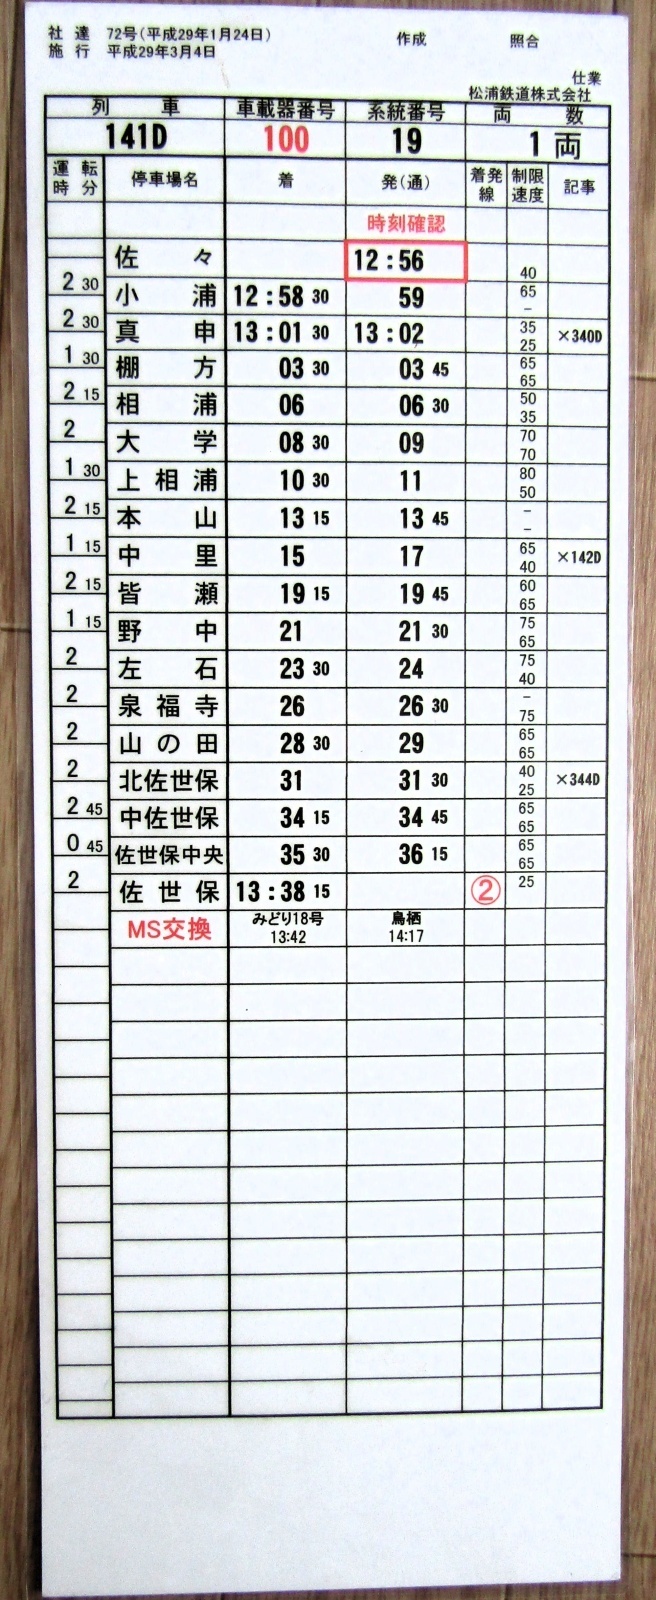 社 達 72号(平成29年1月24日)
施 行 平成29年3月4日
作成 照合
仕業
松浦鉄道株式会社
列 車 車載器番号 系統番号 両 数
141D 100 19 1 両
運 転 時 分 停車場名 着 発(通) 着発線 制限速度 記事
時刻確認
佐 々 12:56 40
2 30
小 浦 12:58 30 59 65 -
2 30
真 申 13:01 30 13:02 35 25 ×340D
1 30
棚 方 03 30 03 45 65 65
2 15
相 浦 06 06 30 50 35
2
大 学 08 30 09 70 70
1 30
上 相 浦 10 30 11 80 50
2 15
本 山 13 15 13 45 - -
1 15
中 里 15 17 65 40 ×142D
2 15
皆 瀬 19 15 19 45 60 65
1 15
野 中 21 21 30 75 65
2
左 石 23 30 24 75 40
2
泉 福 寺 26 26 30 - 75
2
山 の 田 28 30 29 65 65
2
北佐世保 31 31 30 40 25 ×344D
2 45
中佐世保 34 15 34 45 65 65
0 45
佐世保中央 35 30 36 15 65 65
2
佐 世 保 13:38 15 ② 25
MS交換 みどり18号 鳥栖
13:42 14:17